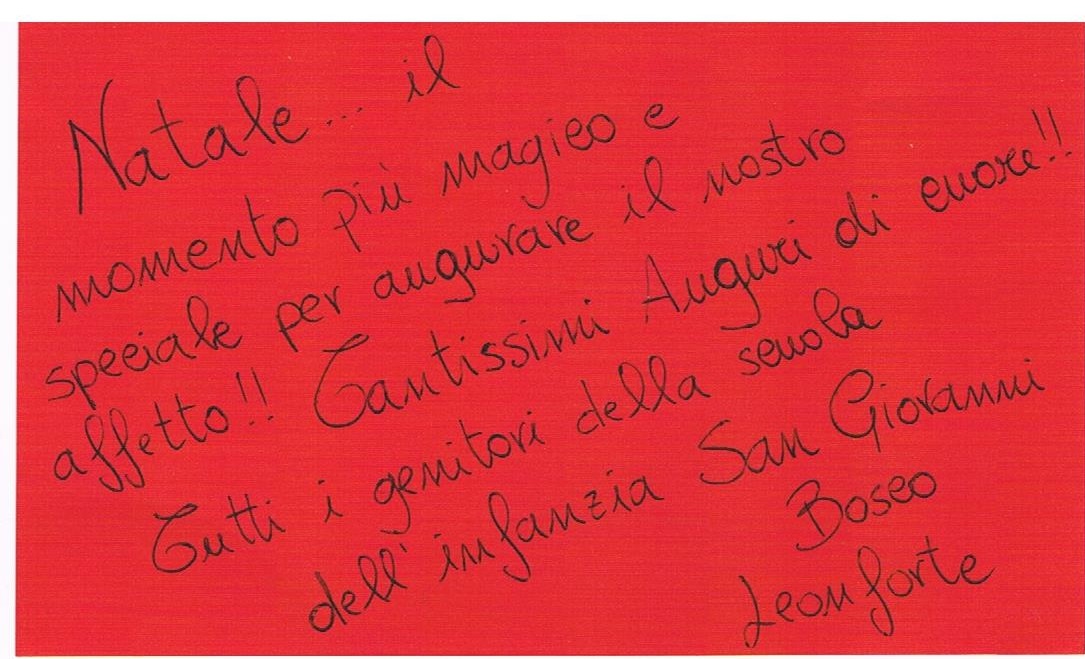 Natale... il
momento più magico e
speciale per augurare il nostro
affetto!! Tantissimi Auguri di cuore!!
Tutti i genitori della scuola
dell'infanzia San Giovanni
Bosco
Leonforte